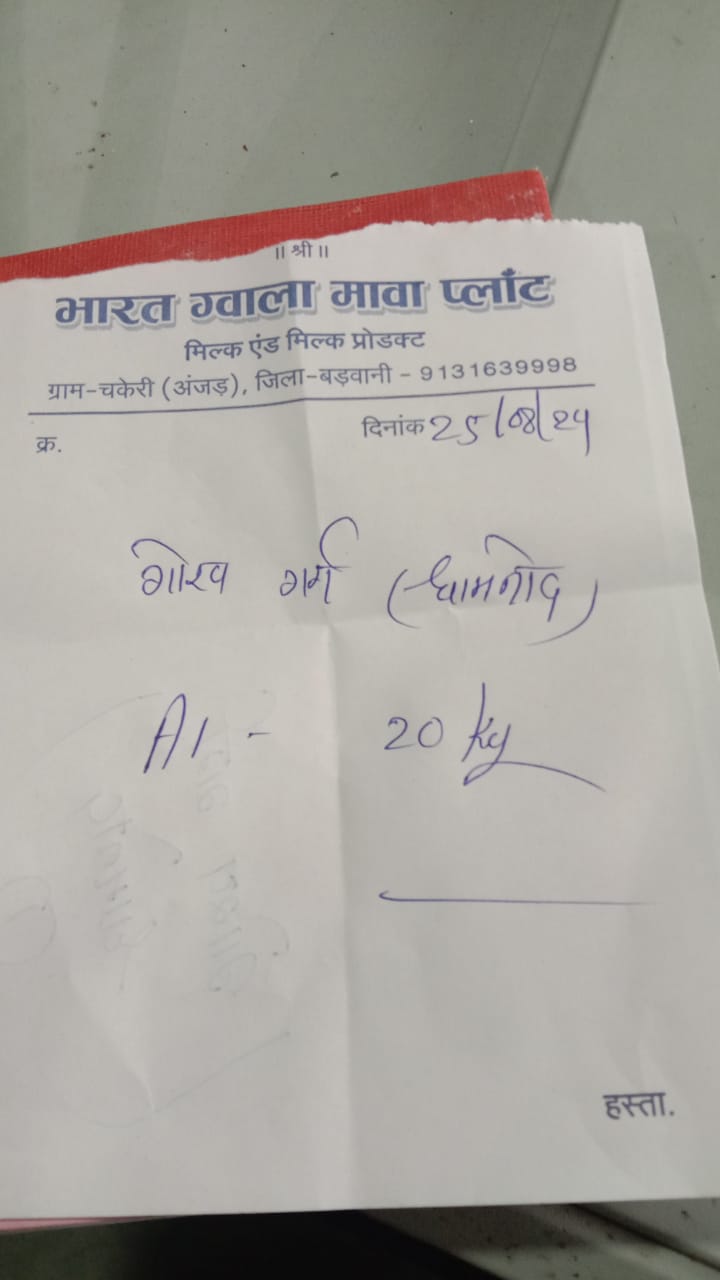 ॥ श्री ॥
भारत ग्वाला मावा प्लाँट
मिल्क एंड मिल्क प्रोडक्ट
ग्राम-चकेरी (अंजड़), जिला-बड़वानी - 9131639998
क्र. दिनांक 25/08/24
गर्ग (धामनोद)
A1 - 20 kg
हस्ता.